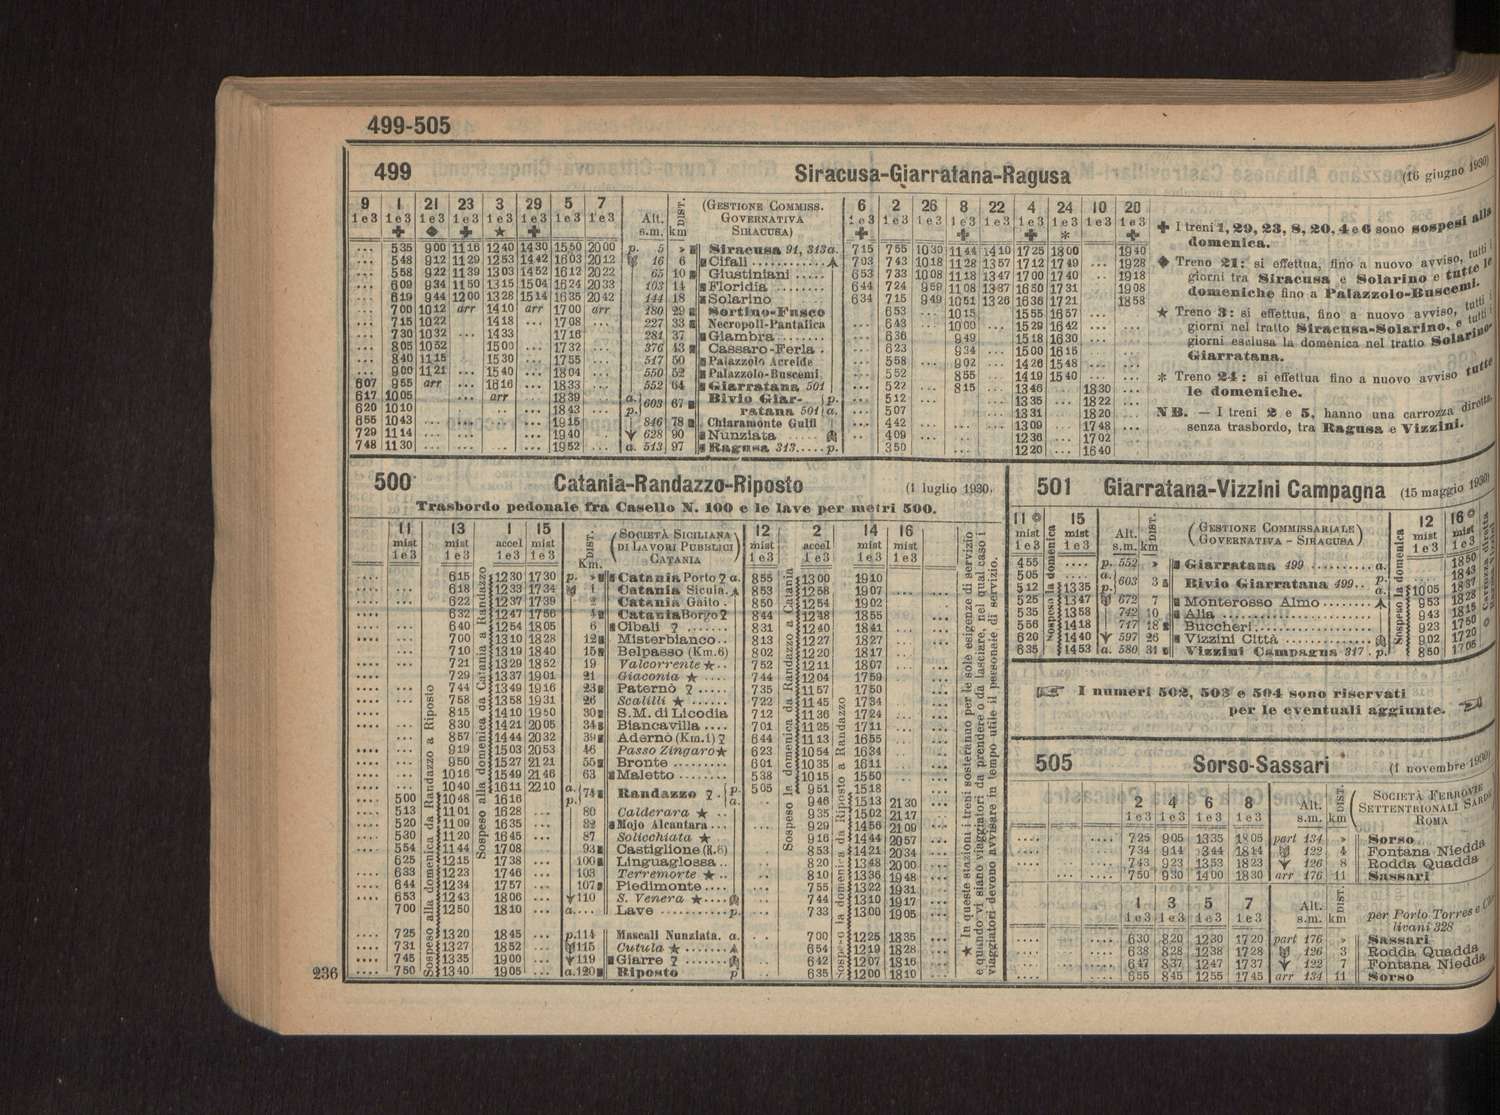 499-505
499 Siracusa-Giarratana-Ragusa (16 giugno 1930)
9 1 21 23 3 29 5 7 Alt. DIST. (GESTIONE COMMISS. 6 2 26 8 22 4 24 10 20
1e3 1e3 1e3 1e3 1e3 1e3 1e3 1e3 s.m. km GOVERNATIVA SIRACUSA) 1e3 1e3 1e3 1e3 1e3 1e3 1e3 1e3 1e3
... 535 900 1116 1240 1430 1550 2000 p. 5 » Siracusa 91, 313 a. 715 755 1030 1144 1410 1725 1800 1940
... 548 912 1129 1253 1442 1603 2012 16 6 Cifali 703 743 1018 1128 1357 1712 1749 ... 1928
... 558 922 1139 1303 1452 1612 2022 65 10 Giustiniani 653 733 1008 1118 1347 1700 1740 ... 1918
... 609 934 1150 1315 1504 1624 2033 103 14 Floridia 644 724 959 1108 1337 1650 1731 1908
... 619 944 1200 1328 1514 1635 2042 144 18 Solarino 634 715 949 1051 1326 1636 1721 1858
... 700 1012 arr 1410 arr 1700 arr 180 29 Sortino-Fusco 653 1015 1555 1657
... 715 1022 1418 ... 1708 ... 227 33 Necropoli-Pantalica 643 1000 1529 1642
... 730 1032 1433 1716 281 37 Giambra 636 949 1518 1630
... 805 1052 1500 1732 376 43 Cassaro-Ferla 623 934 1500 1615
... 840 1115 1530 1755 517 50 Palazzolo Acreide 558 902 1426 1548
... 900 1121 1540 1804 550 52 Palazzolo-Buscemi 552 855 1419 1540
607 955 arr 1616 1833 552 64 Giarratana 501 522 815 1346 1830
617 1005 arr 1839 a. 603 67 Bivio Giar- p. 512 1335 1822
620 1010 1843 p. ratana 501 a. 507 1331 1820
655 1043 1915 846 78 Chiaramonte Gulfi 442 1309 1748
729 1114 1940 628 90 Nunziata 409 1236 1702
748 1130 1952 a. 513 97 Ragusa 313 p. 350 1220 1640
✚ I treni 1, 29, 23, 8, 20, 4 e 6 sono sospesi alla
domenica.
◆ Treno 21: si effettua, fino a nuovo avviso, tutti i
giorni tra Siracusa e Solarino e tutte le
domeniche fino a Palazzolo-Buscemi.
★ Treno 3: si effettua, fino a nuovo avviso, tutti i
giorni nel tratto Siracusa-Solarino, e tutti i
giorni esclusa la domenica nel tratto Solarino-
Giarratana.
* Treno 24: si effettua fino a nuovo avviso tutte
le domeniche.
NB. — I treni 2 e 5, hanno una carrozza diretta,
senza trasbordo, tra Ragusa e Vizzini.
500 Catania-Randazzo-Riposto (1 luglio 1930.
Trasbordo pedonale fra Casello N. 100 e le lave per metri 500.
11 13 1 15 DIST. Km. (SOCIETÀ SICILIANA 12 2 14 16
mist mist accel mist DI LAVORI PUBBLICI mist accel mist mist
1e3 1e3 1e3 1e3 CATANIA) 1e3 1e3 1e3 1e3
615 1230 1730 p. » Catania Porto a. 855 1300 1910
618 1233 1734 1 Catania Sicula 853 1258 1907
622 1237 1739 2 Catania Gaito 850 1254 1902
632 1247 1756 4 Catania Borgo 844 1248 1855
640 1254 1805 6 Cibali 831 1240 1841
700 1310 1828 12 Misterbianco 813 1227 1827
710 1319 1840 15 Belpasso (Km.6) 802 1220 1817
721 1329 1852 19 Valcorrente ★ 752 1211 1807
729 1337 1901 21 Giaconia ★ 744 1204 1759
744 1349 1916 23 Paternò 735 1157 1750
758 1358 1931 26 Scalilli ★ 722 1145 1734
815 1410 1950 30 S.M. di Licodia 712 1136 1724
830 1421 2005 34 Biancavilla 701 1125 1711
857 1444 2032 39 Adernò (Km.1) 644 1113 1655
919 1503 2053 46 Passo Zingaro ★ 623 1054 1634
950 1527 2121 55 Bronte 601 1035 1611
1016 1549 2146 63 Maletto 538 1015 1550
1040 1611 2210 a. 74 Randazzo p. 505 951 1518
500 1048 1616 p. a. 946 1513 2130
513 1101 1628 80 Calderara ★ 935 1502 2117
520 1109 1635 82 Mojo Alcantara 929 1456 2109
530 1120 1645 87 Solicchiata ★ 916 1444 2057
554 1144 1708 93 Castiglione (K.6) 853 1421 2034
625 1215 1738 100 Linguaglossa 820 1348 2000
633 1223 1746 103 Terremorte ★ 810 1336 1948
644 1234 1757 107 Piedimonte 755 1322 1931
653 1243 1806 110 S. Venera ★ 744 1310 1917
700 1250 1810 a. Lave p. 733 1300 1905
725 1320 1845 p. 114 Mascali Nunziata. a. 700 1225 1835
731 1327 1852 115 Cutula ★ 654 1219 1828
745 1335 1900 119 Giarre 642 1207 1816
750 1340 1905 a. 120 Riposto p 635 1200 1810
Sospeso alla domenica da Randazzo a Riposto
Sospeso alla domenica da Catania a Randazzo
Sospeso la domenica da Randazzo a Catania
Sospeso la domenica da Riposto a Randazzo
★ In queste stazioni i treni sosteranno per le sole esigenze di servizio
e quando vi siano viaggiatori da prendere o da lasciare, nel qual caso i
viaggiatori devono avvisare in tempo utile il personale di servizio.
501 Giarratana-Vizzini Campagna (15 maggio 1930)
11 15 Alt. DIST. (GESTIONE COMMISSARIALE 12 16
mist mist s.m. km GOVERNATIVA - SIRACUSA) mist mist
1e3 1e3 1e3 1e3
455 .... p. 552 » Giarratana 499 a. 1850
505 .... a. 603 3 Bivio Giarratana 499 p. 1843
512 1335 p. a. 1005 1837
525 1347 672 7 Monterosso Almo 953 1828
535 1358 742 10 Alia 943 1815
556 1418 717 18 Buccheri 923 1750
620 1440 597 26 Vizzini Città 902 1720
635 1453 a. 580 31 Vizzini Campagna 317 p. 850 1705
Sospeso la domenica
Sospeso la domenica
I numeri 502, 503 e 504 sono riservati
per le eventuali aggiunte.
505 Sorso-Sassari (1 novembre 1930)
2 4 6 8 Alt. DIST. (SOCIETÀ FERROVIE
1e3 1e3 1e3 1e3 s.m. km SETTENTRIONALI SARDE
ROMA
725 905 1335 1805 part 134 » Sorso
734 914 1344 1814 122 4 Fontana Niedda
743 923 1353 1823 126 8 Rodda Quadda
750 930 1400 1830 arr 176 11 Sassari
1 3 5 7 Alt. DIST. per Porto Torres e
1e3 1e3 1e3 1e3 s.m. km livani 328
630 820 1230 1720 part 176 » Sassari
638 828 1238 1728 126 3 Rodda Quadda
647 837 1247 1737 122 7 Fontana Niedda
655 845 1255 1745 arr 134 11 Sorso
236